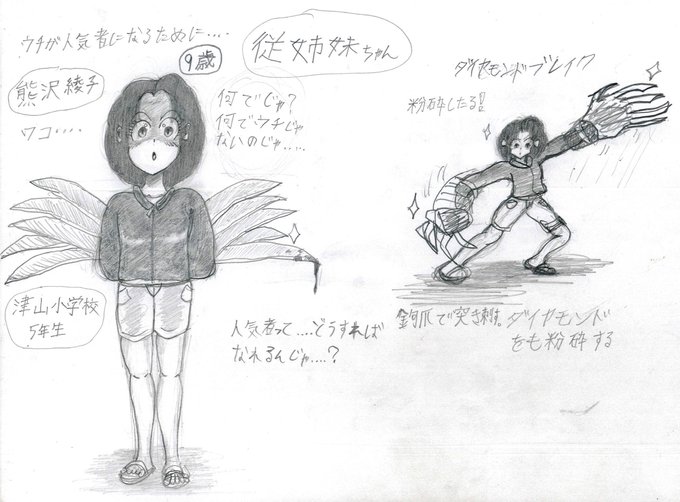 ウチが人気者になるために‥‥
熊沢綾子
9歳
ワコ‥‥
従姉妹ちゃん
何でじゃ?
何でウチじゃ
ないのじゃ‥‥
津山小学校
5年生
人気者って‥‥どうすれば
なれるんじゃ‥‥?
ダイヤモンドブレイク
粉砕したる!!
鉤爪で突き刺す。ダイヤモンド
をも粉砕する